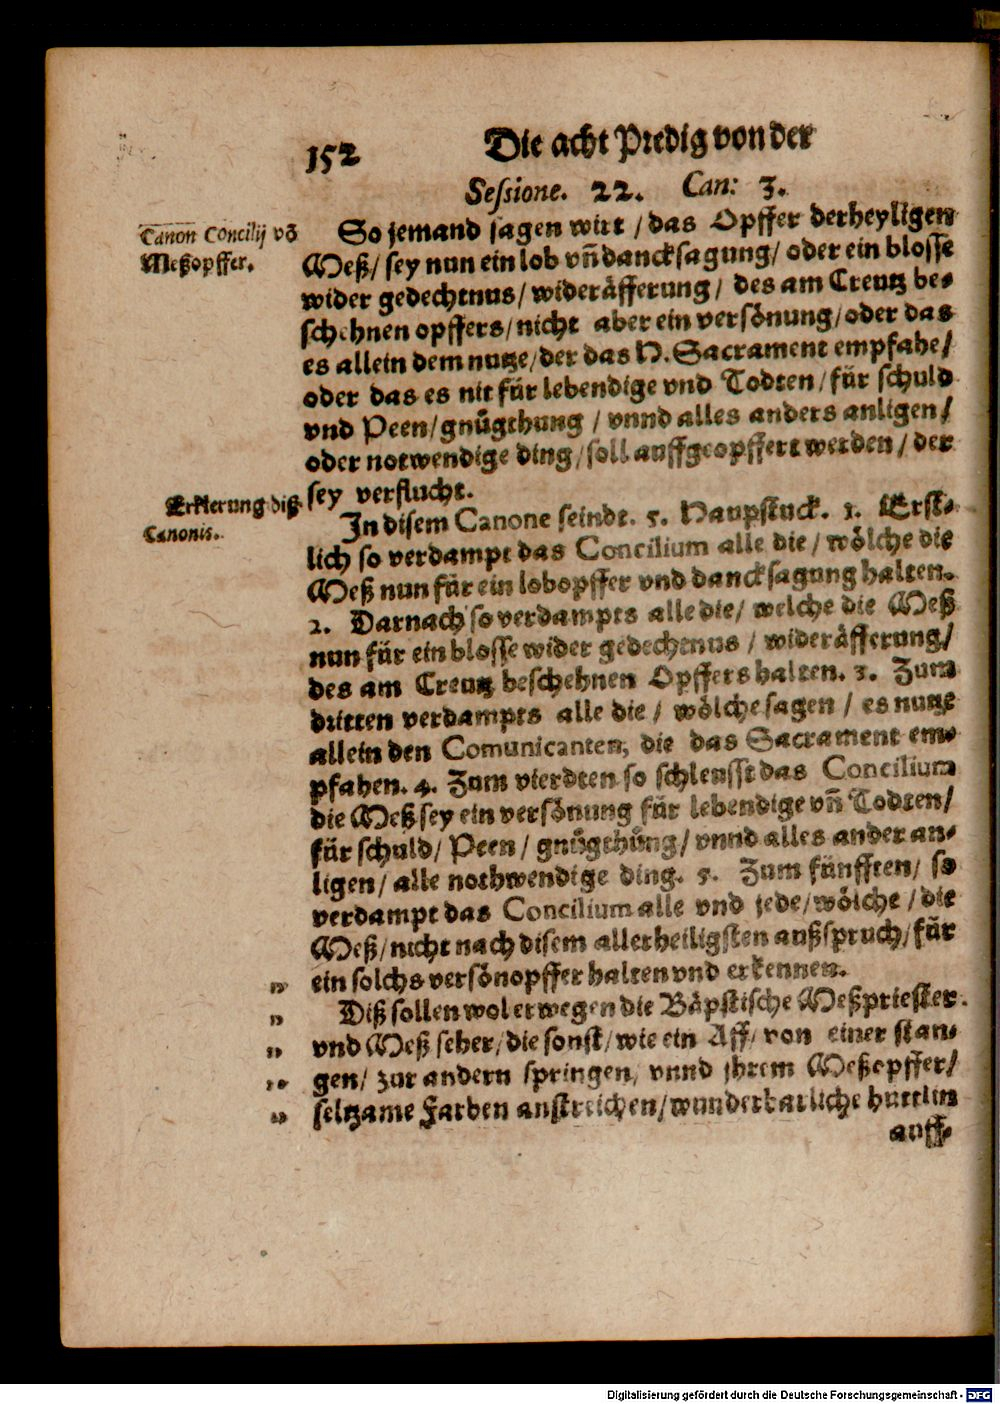 152 Die acht Predig von der
Sessione. 22. Can: 3.
Canon Concilij võ
Meßopffer.
So jemand sagen wirt / das Opffer der heyligen
Meß / sey nun ein lob vñ dancksagung / oder ein blosse
wider gedechtnus / wideräfferung / des am Creutz be-
schehnen opffers / nicht aber ein versönung / oder das
es allein dem nutze / der das H. Sacrament empfahe /
oder das es nit für lebendige vnd Todten / für schuld
vnd Peen / gnůgthung / vnnd alles anders anligen /
oder notwendige ding / soll auffgeopffert werden / der
sey verflucht.
Erklerung diß
Canonis.
In disem Canone seindt. 5. Haupstuck. 1. Erst-
lich so verdampt das Concilium alle die / wölche die
Meß nun für ein lobopffer vnd dancksagung halten.
2. Darnach so verdampts alle die / welche die Meß
nun für ein blosse wider gedechtnus / wideräfferung /
des am Creutz beschehnen Opffers halten. 3. Zum
dritten verdampts alle die / wölche sagen / es nutze
allein den Comunicanten, die das Sacrament em-
pfahen. 4. Zum vierdten so schleusst das Concilium
die Meß sey ein versönung für lebendige vñ Todten /
für schuld / Peen / gnůgthůng / vnnd alles ander an-
ligen / alle nothwendige ding. 5. Zum fünfften / so
verdampt das Concilium alle vnd jede / wölche / die
Meß / nicht nach disem allerheiligsten außspruch / für
ein solchs versönopffer halten vnd erkennen.
Diß sollen wol erwegen die Bäpstische Meßpriester.
vnd Meß seher / die sonst / wie ein Aff / von einer stan-
gen / zur andern springen / vnnd jhrem Meßopffer /
seltzame Farben anstreichen / wunderbarliche huetlin
auff-
Digitalisierung gefördert durch die Deutsche Forschungsgemeinschaft - DFG